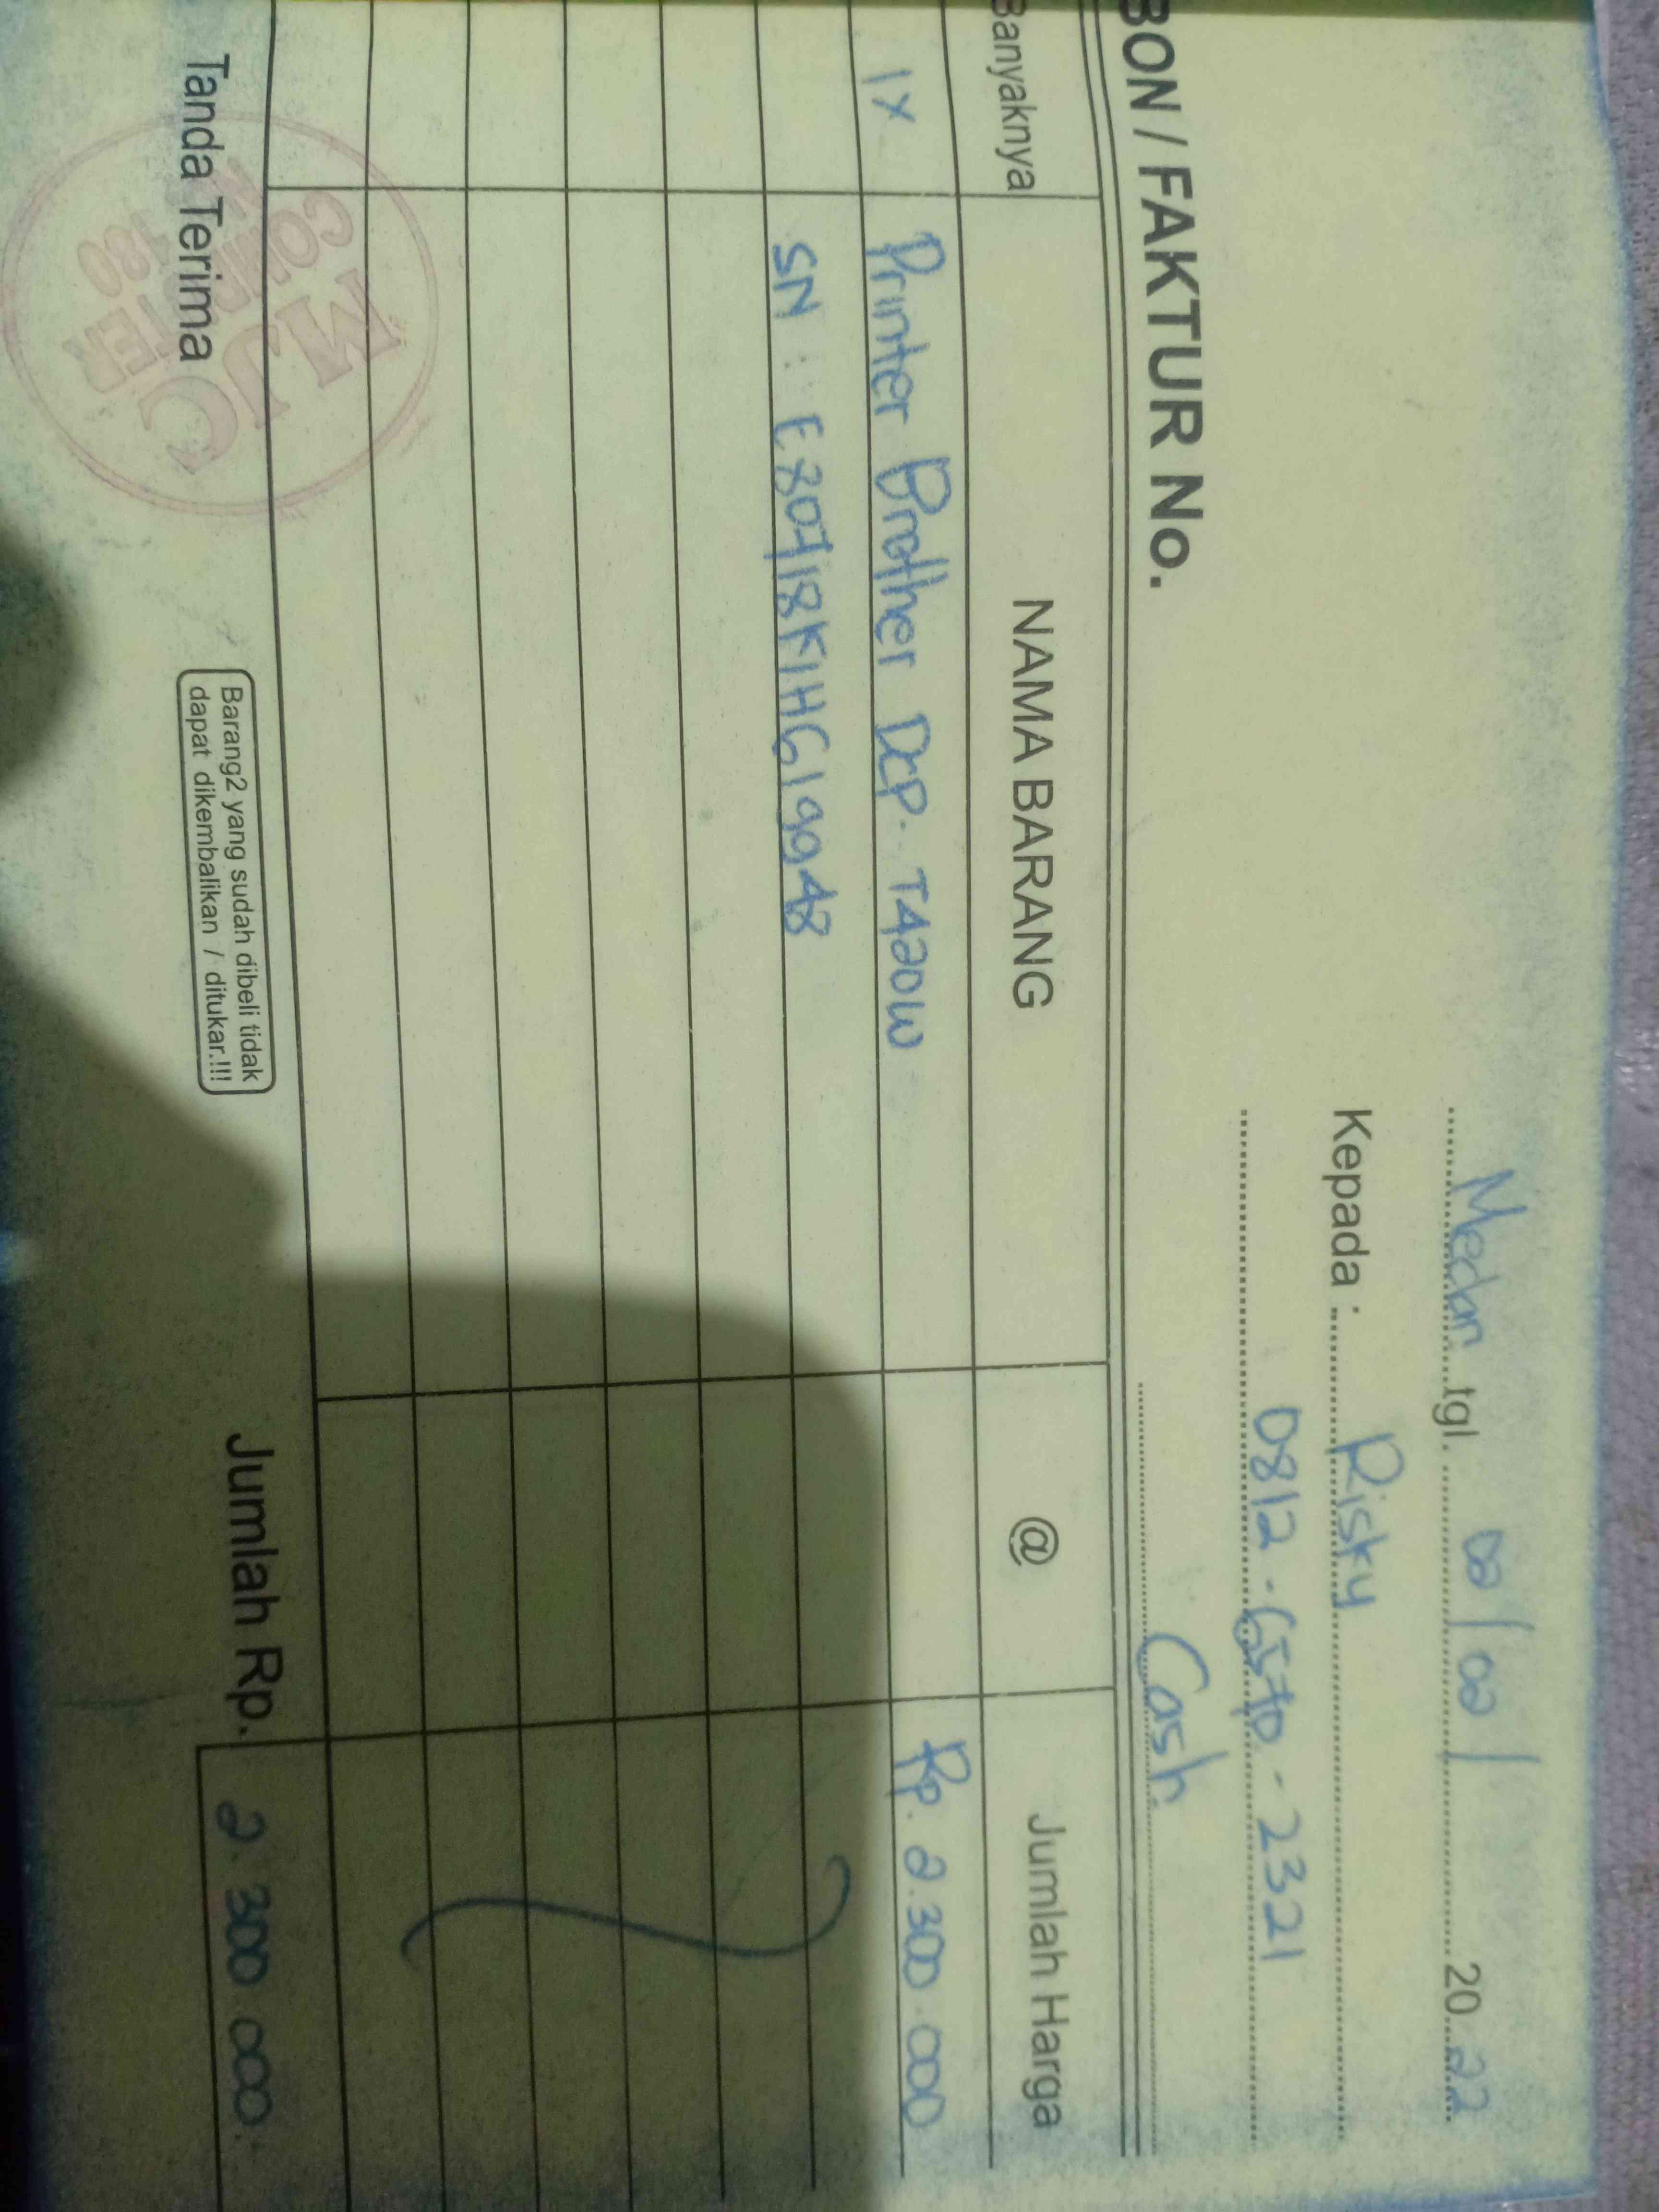 Medan tgl. 08 / 08 / 2022
Kepada : Risky
0812 - 6570 - 2321
Cash.
BON / FAKTUR No.
Banyaknya NAMA BARANG @ Jumlah Harga
1x Printer Brother DCP- T420W Rp. 2.300.000
SN : E80718K1H619948
Tanda Terima
Barang2 yang sudah dibeli tidak
dapat dikembalikan / ditukar.!!!
Jumlah Rp. 2. 300 000.